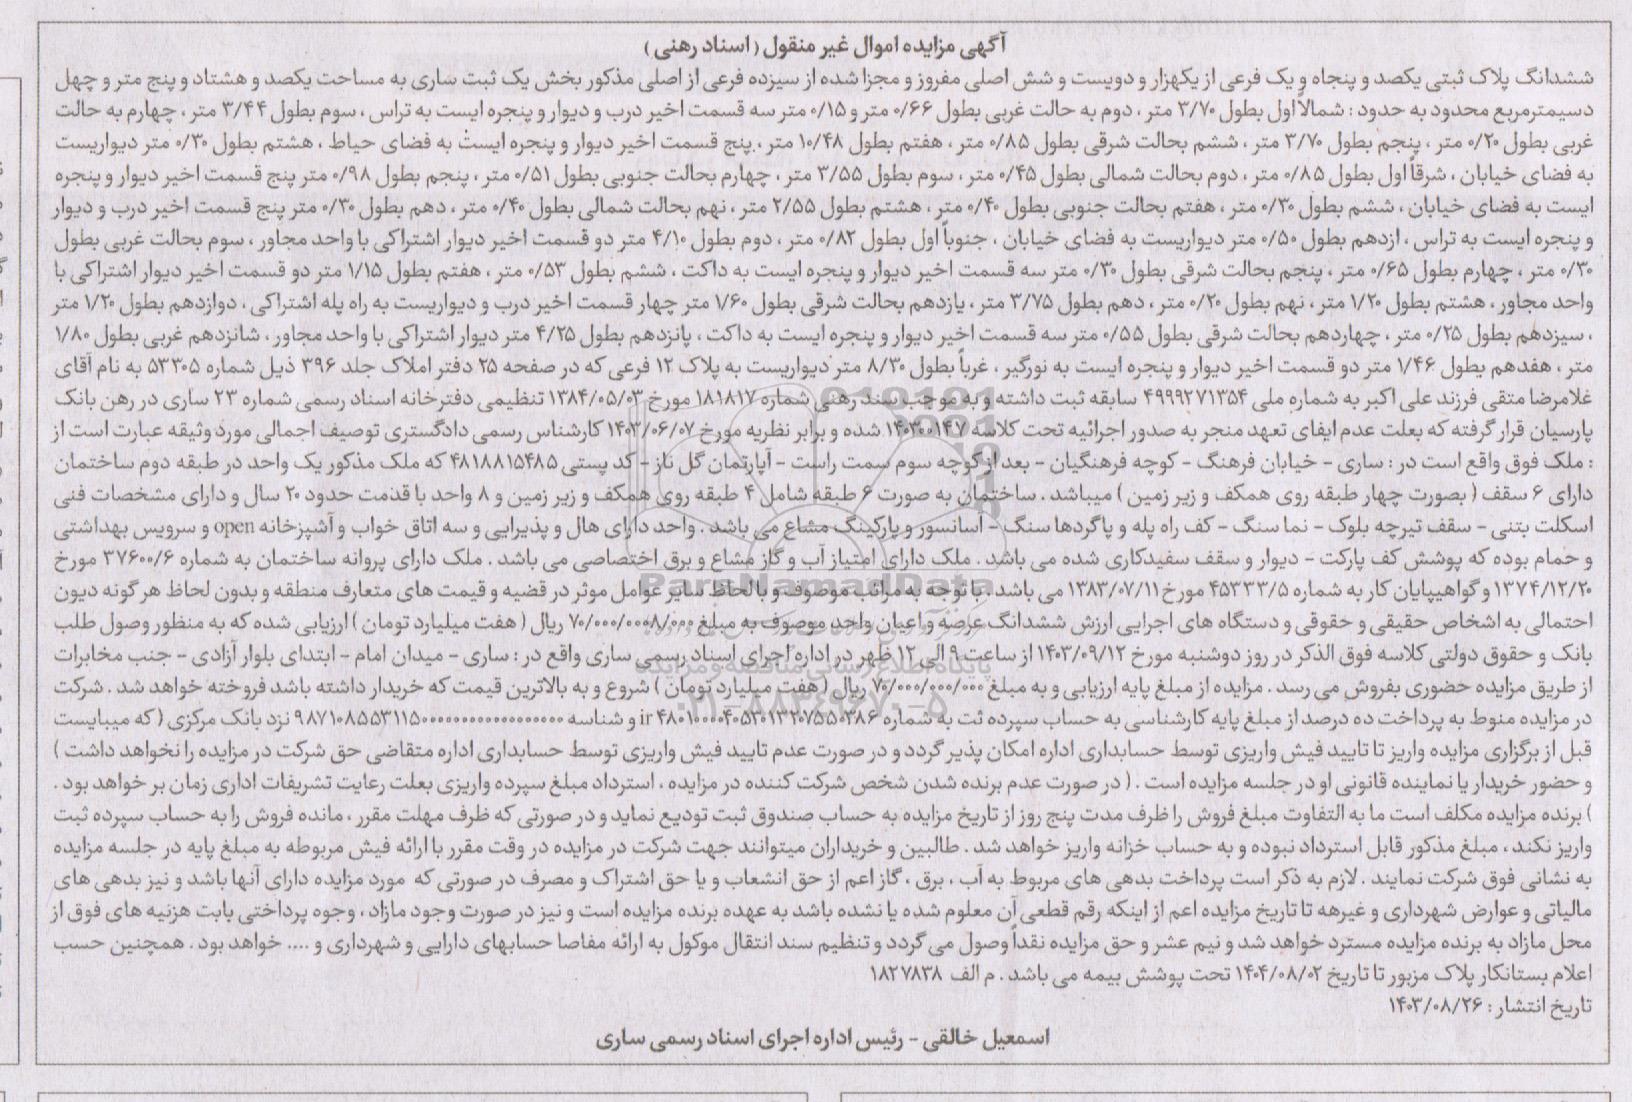 آگهی مزایده اموال غیر منقول ( اسناد رهنی )
ششدانگ پلاک ثبتی یکصد و پنجاه و یک فرعی از یکهزار و دویست و شش اصلی مفروز و مجزا شده از سیزده فرعی از اصلی مذکور بخش یک ثبت ساری به مساحت یکصد و هشتاد و پنج متر و چهل
دسیمترمربع محدود به حدود : شمالاً اول بطول ۳/۷۰ متر ، دوم به حالت غربی بطول ۰/۶۶ متر و ۰/۱۵ متر سه قسمت اخیر درب و دیوار و پنجره ایست به تراس ، سوم بطول ۳/۴۴ متر ، چهارم به حالت
غربی بطول ۰/۲۰ متر ، پنجم بطول ۳/۷۰ متر ، ششم بحالت شرقی بطول ۰/۸۵ متر ، هفتم بطول ۱۰/۴۸ متر ، پنج قسمت اخیر دیوار و پنجره ایست به فضای حیاط ، هشتم بطول ۰/۳۰ متر دیواریست
به فضای خیابان ، شرقاً اول بطول ۰/۸۵ متر ، دوم بحالت شمالی بطول ۰/۴۵ متر ، سوم بطول ۳/۵۵ متر ، چهارم بحالت جنوبی بطول ۰/۵۱ متر ، پنجم بطول ۰/۹۸ متر پنج قسمت اخیر دیوار و پنجره
ایست به فضای خیابان ، ششم بطول ۰/۳۰ متر ، هفتم بحالت جنوبی بطول ۰/۴۰ متر ، هشتم بطول ۲/۵۵ متر ، نهم بحالت شمالی بطول ۰/۴۰ متر ، دهم بطول ۰/۳۰ متر پنج قسمت اخیر درب و دیوار
و پنجره ایست به تراس ، ازدهم بطول ۰/۵۰ متر دیواریست به فضای خیابان ، جنوباً اول بطول ۰/۸۲ متر ، دوم بطول ۴/۱۰ متر دو قسمت اخیر دیوار اشتراکی با واحد مجاور ، سوم بحالت غربی بطول
۰/۳۰ متر ، چهارم بطول ۰/۶۵ متر ، پنجم بحالت شرقی بطول ۰/۳۰ متر سه قسمت اخیر دیوار و پنجره ایست به داکت ، ششم بطول ۰/۵۳ متر ، هفتم بطول ۱/۱۵ متر دو قسمت اخیر دیوار اشتراکی با
واحد مجاور ، هشتم بطول ۱/۲۰ متر ، نهم بطول ۰/۲۰ متر ، دهم بطول ۳/۷۵ متر ، یازدهم بحالت شرقی بطول ۱/۶۰ متر چهار قسمت اخیر درب و دیواریست به راه پله اشتراکی ، دوازدهم بطول ۱/۲۰ متر
، سیزدهم بطول ۰/۲۵ متر ، چهاردهم بحالت شرقی بطول ۰/۵۵ متر سه قسمت اخیر دیوار و پنجره ایست به داکت ، پانزدهم بطول ۴/۲۵ متر دیوار اشتراکی با واحد مجاور ، شانزدهم غربی بطول ۱/۸۰
متر ، هفدهم بطول ۱/۴۶ متر دو قسمت اخیر دیوار و پنجره ایست به نورگیر ، غرباً بطول ۸/۳۰ متر دیواریست به پلاک ۱۲ فرعی که در صفحه ۲۵ دفتر املاک جلد ۳۹۶ ذیل شماره ۵۳۳۰۵ به نام آقای
غلامرضا متقی فرزند علی اکبر به شماره ملی ۴۹۹۹۲۷۱۳۵۴ سابقه ثبت داشته و به موجب سند رهنی شماره ۱۸۱۸۱۷ مورخ ۱۳۸۴/۰۵/۰۳ تنظیمی دفترخانه اسناد رسمی شماره ۲۳ ساری در رهن بانک
پارسیان قرار گرفته که بعلت عدم ایفای تعهد منجر به صدور اجرائیه تحت کلاسه ۱۴۰۳۰۰۱۴۷ شده و برابر نظریه مورخ ۱۴۰۳/۰۶/۰۷ کارشناس رسمی دادگستری توصیف اجمالی مورد وثیقه عبارت است از
: ملک فوق واقع است در : ساری - خیابان فرهنگ - کوچه فرهنگیان - بعد از کوچه سوم سمت راست - آپارتمان گل ناز - کد پستی ۴۸۱۸۸۱۵۴۸۵ که ملک مذکور یک واحد در طبقه دوم ساختمان
دارای ۶ سقف ( بصورت چهار طبقه روی همکف و زیر زمین ) میباشد . ساختمان به صورت ۶ طبقه شامل ۴ طبقه روی همکف و زیر زمین و ۸ واحد با قدمت حدود ۲۰ سال و دارای مشخصات فنی
اسکلت بتنی - سقف تیرچه بلوک - نما سنگ - کف راه پله و پاگردها سنگ - آسانسور و پارکینگ مشاع می باشد . واحد دارای هال و پذیرایی و سه اتاق خواب و آشپزخانه open و سرویس بهداشتی
و حمام بوده که پوشش کف پارکت - دیوار و سقف سفیدکاری شده می باشد . ملک دارای امتیاز آب و گاز مشاع و برق اختصاصی می باشد . ملک دارای پروانه ساختمان به شماره ۳۷۶۰۰/۶ مورخ
۱۳۷۴/۱۲/۲۰ و گواهیپایان کار به شماره ۴۵۳۳۳/۵ مورخ ۱۳۸۳/۰۷/۱۱ می باشد . با توجه به مراتب موصوف و با لحاظ سایر عوامل موثر در قضیه و قیمت های متعارف منطقه و بدون لحاظ هر گونه دیون
احتمالی به اشخاص حقیقی و حقوقی و دستگاه های اجرایی ارزش ششدانگ عرصه و اعیان واحد موصوف به مبلغ ۷۰/۰۰۰/۰۰۰۸/۰۰۰ ریال ( هفت میلیارد تومان ) ارزیابی شده که به منظور وصول طلب
بانک و حقوق دولتی کلاسه فوق الذکر در روز دوشنبه مورخ ۱۴۰۳/۰۹/۱۲ از ساعت ۹ الی ۱۲ ظهر در اداره اجرای اسناد رسمی ساری واقع در : ساری - میدان امام - ابتدای بلوار آزادی - جنب مخابرات
از طریق مزایده حضوری بفروش می رسد . مزایده از مبلغ پایه ارزیابی و به مبلغ ۷۰/۰۰۰/۰۰۰/۰۰۰ ریال ( هفت میلیارد تومان ) شروع و به بالاترین قیمت که خریدار داشته باشد فروخته خواهد شد . شرکت
در مزایده منوط به پرداخت ده درصد از مبلغ پایه کارشناسی به حساب سپرده ثبت به شماره ir و شناسه نزد بانک مرکزی ( که میبایست
قبل از برگزاری مزایده واریز تا تایید فیش واریزی توسط حسابداری اداره امکان پذیر گردد و در صورت عدم تایید فیش واریزی توسط حسابداری اداره متقاضی حق شرکت در مزایده را نخواهد داشت )
و حضور خریدار یا نماینده قانونی او در جلسه مزایده است . ( در صورت عدم برنده شدن شخص شرکت کننده در مزایده ، استرداد مبلغ سپرده واریزی بعلت رعایت تشریفات اداری زمان بر خواهد بود .
) برنده مزایده مکلف است ما به التفاوت مبلغ فروش را ظرف مدت پنج روز از تاریخ مزایده به حساب صندوق ثبت تودیع نماید و در صورتی که ظرف مهلت مقرر ، مانده فروش را به حساب سپرده ثبت
واریز نکند ، مبلغ مذکور قابل استرداد نبوده و به حساب خزانه واریز خواهد شد . طالبین و خریداران میتوانند جهت شرکت در مزایده در وقت مقرر با ارائه فیش مربوطه به مبلغ پایه در جلسه مزایده
به نشانی فوق شرکت نمایند . لازم به ذکر است پرداخت بدهی های مربوط به آب ، برق ، گاز اعم از حق انشعاب و یا حق اشتراک و مصرف در صورتی که مورد مزایده دارای آنها باشد و نیز بدهی های
مالیاتی و عوارض شهرداری و غیرهه تا تاریخ مزایده اعم از اینکه رقم قطعی آن معلوم شده یا نشده باشد به عهده برنده مزایده است و نیز در صورت وجود مازاد ، وجوه پرداختی بابت هزنیه های فوق از
محل مازاد به برنده مزایده مسترد خواهد شد و نیم عشر و حق مزایده نقداً وصول می گردد و تنظیم سند انتقال موکول به ارائه مفاصا حسابهای دارایی و شهرداری و .... خواهد بود . همچنین حسب
اعلام بستانکار پلاک مزبور تا تاریخ ۱۴۰۴/۰۸/۰۲ تحت پوشش بیمه می باشد . م الف ۱۸۲۷۸۳۸
تاریخ انتشار : ۱۴۰۳/۰۸/۲۶
اسمعیل خالقی - رئیس اداره اجرای اسناد رسمی ساری
ParsNamadData
پایگاه اطلاع رسانی مناقصه و مزایده
۰۲۱-۸۸۳۴۹۶۷۰-۵